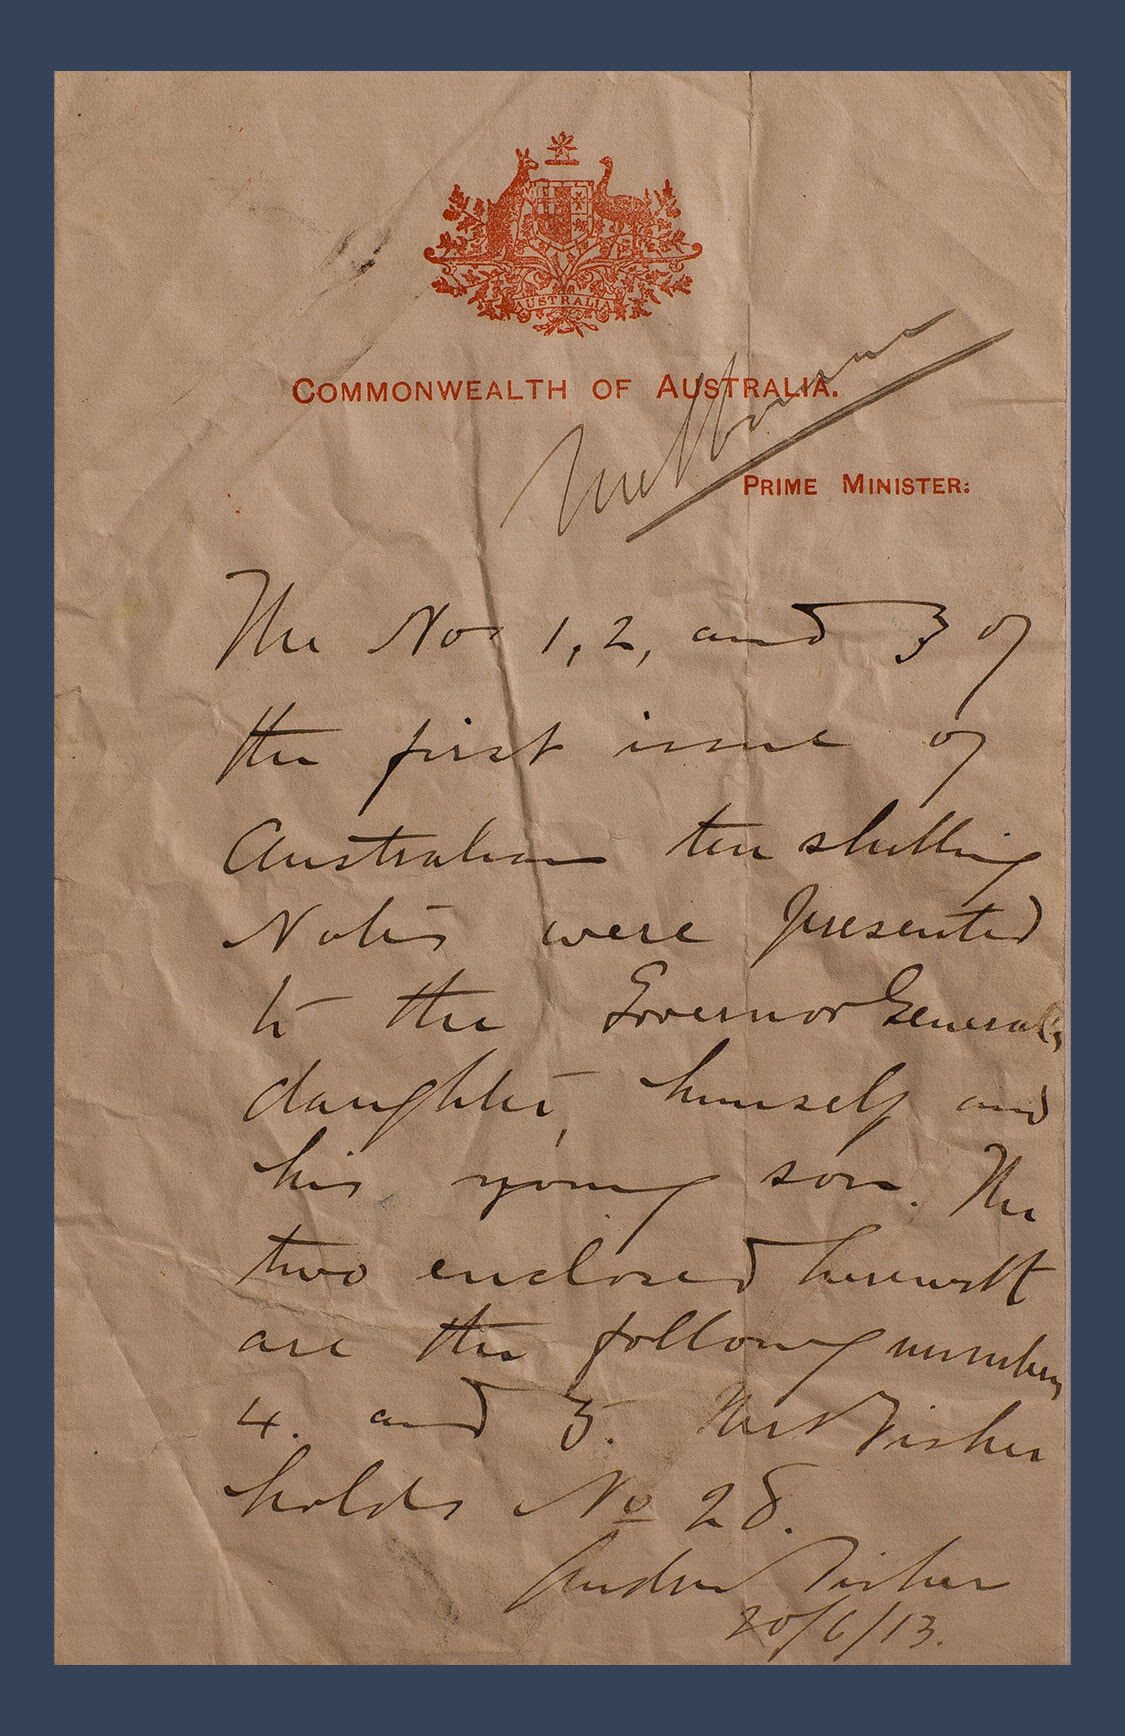 AUSTRALIA
COMMONWEALTH OF AUSTRALIA.
Melbourne
PRIME MINISTER:
The Nos 1, 2, and 3 of
the first issue of
Australian ten shilling
Notes were presented
to the Governor Generals
daughter, himself and
his young son. The
two enclosed herewith
are the following numbers
4. and 5. Mrs Fisher
holds No 28.
Andrew Fisher
20/6/13.